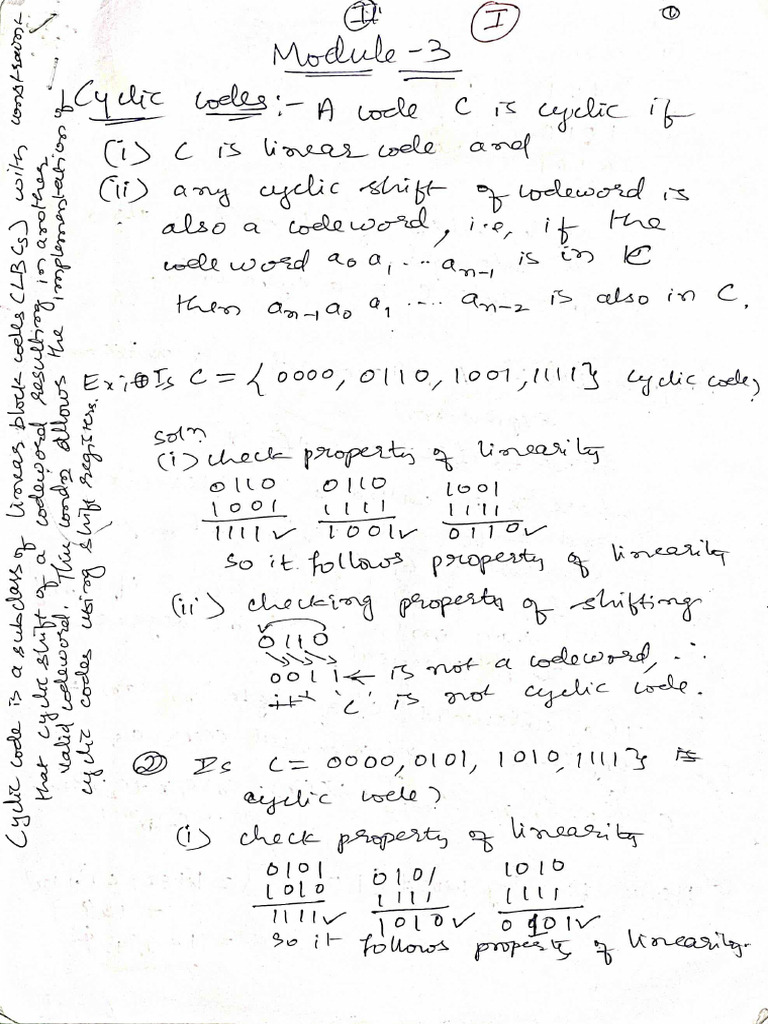 II
I
①
Module-3
Cyclic codes:- A code C is cyclic if
(i) C is linear code and
(ii) any cyclic shift of codeword is
also a codeword, i.e, if the
codeword a₀ a₁ ... aₙ₋₁ is in C
then aₙ₋₁ a₀ a₁ .... aₙ₋₂ is also in C.
Cyclic code is a subclass of linear block codes (LBCs) with constraint
that cyclic shift of a codeword resulting in another
valid codeword. This allows the implementation of
cyclic codes using shift registers.
Ex: ① Is C = { 0000, 0110, 1001, 1111} cyclic code?
soln
(i) check property of linearity
0110 0110 1001
1001 1111 1111
1111✓ 1001✓ 0110✓
so it follows property of linearity
(ii) checking property of shifting
0110
0011 ← is not a codeword, ∴
'C' is not cyclic code.
② Is C = 0000, 0101, 1010, 1111} is
cyclic code?
(i) check property of linearity
0101 0101 1010
1010 1111 1111
1111✓ 1010✓ 0101✓
so it follows property of linearity.